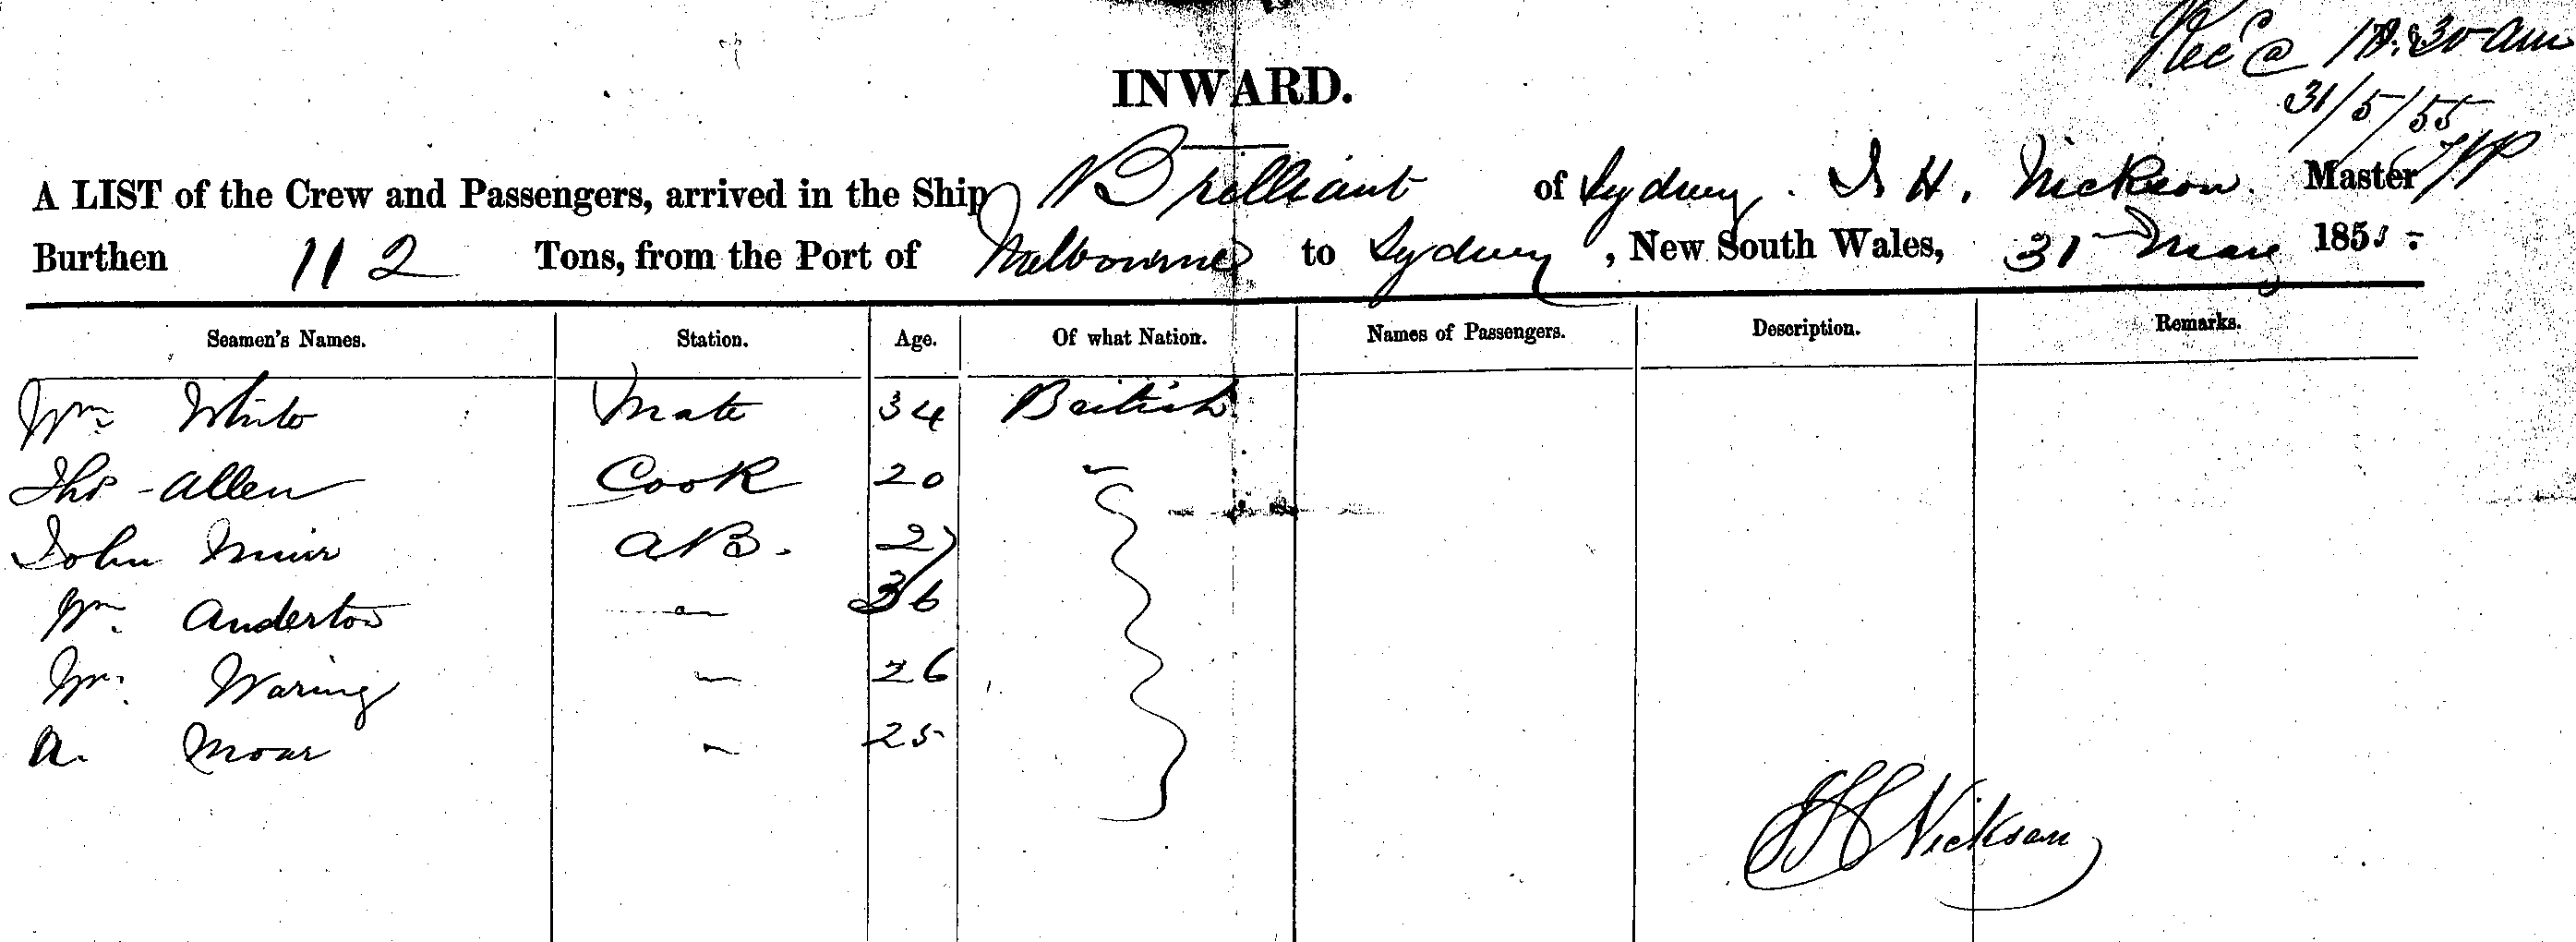 Rec'd @ 10.30 am
31/5/55
INWARD.
A LIST of the Crew and Passengers, arrived in the Ship Brilliant of Sydney. J H. Nickson Master
Burthen 112 Tons, from the Port of Melbourne to Sydney, New South Wales, 31 May 1855.
Seamen's Names. Station. Age. Of what Nation. Names of Passengers. Description. Remarks.
Wm White Mate 34 British
Thos Allen Cook 20
John Muir AB. 27
Wm. Anderton 36
Wm. Waring 26
A. Moar 25
J H Nickson